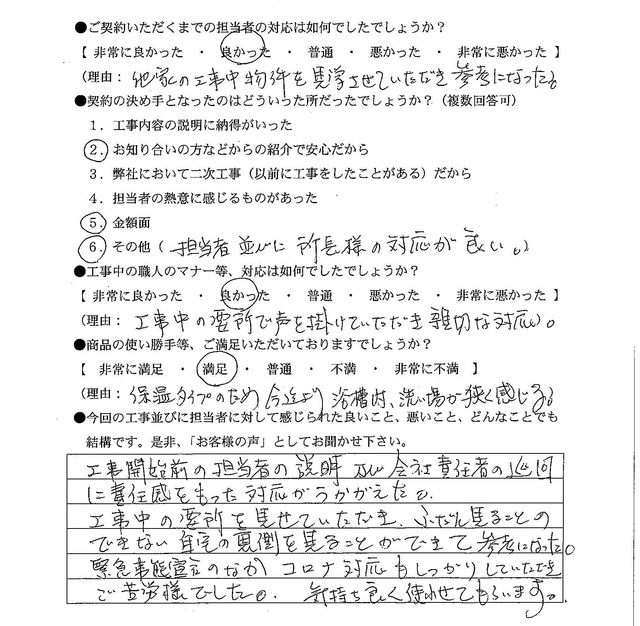 ●ご契約いただくまでの担当者の対応は如何でしたでしょうか？
【 非常に良かった ・ 良かった ・ 普通 ・ 悪かった ・ 非常に悪かった 】
（理由： 他家の工事中物件を見学させていただき参考になった。
●契約の決め手となったのはどういった所だったでしょうか？（複数回答可）
１．工事内容の説明に納得がいった
２．お知り合いの方などからの紹介で安心だから
３．弊社において二次工事（以前に工事をしたことがある）だから
４．担当者の熱意に感じるものがあった
５．金額面
６．その他（ 担当者並びに所長様の対応が良い。）
●工事中の職人のマナー等、対応は如何でしたでしょうか？
【 非常に良かった ・ 良かった ・ 普通 ・ 悪かった ・ 非常に悪かった 】
（理由： 工事中の要所で声を掛けていただき親切な対応）。
●商品の使い勝手等、ご満足いただいておりますでしょうか？
【 非常に満足 ・ 満足 ・ 普通 ・ 不満 ・ 非常に不満 】
（理由： 保温タイプのため今迄より浴槽内、洗い場が狭く感じる。
●今回の工事並びに担当者に対して感じられた良いこと、悪いこと、どんなことでも
結構です。是非、「お客様の声」としてお聞かせ下さい。
工事開始前の担当者の説明及び会社責任者の巡回
に責任感をもった対応がうかがえた。
工事中の要所を見せていただき、ふだん見ることの
できない自宅の裏側を見ることができて参考になった。
緊急事態宣言のなか コロナ対応もしっかりしていただき
ご苦労様でした。 気持ち良く使わせてもらいます。